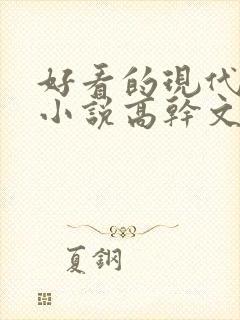 好看的現代
小說高幹文
夏鋼